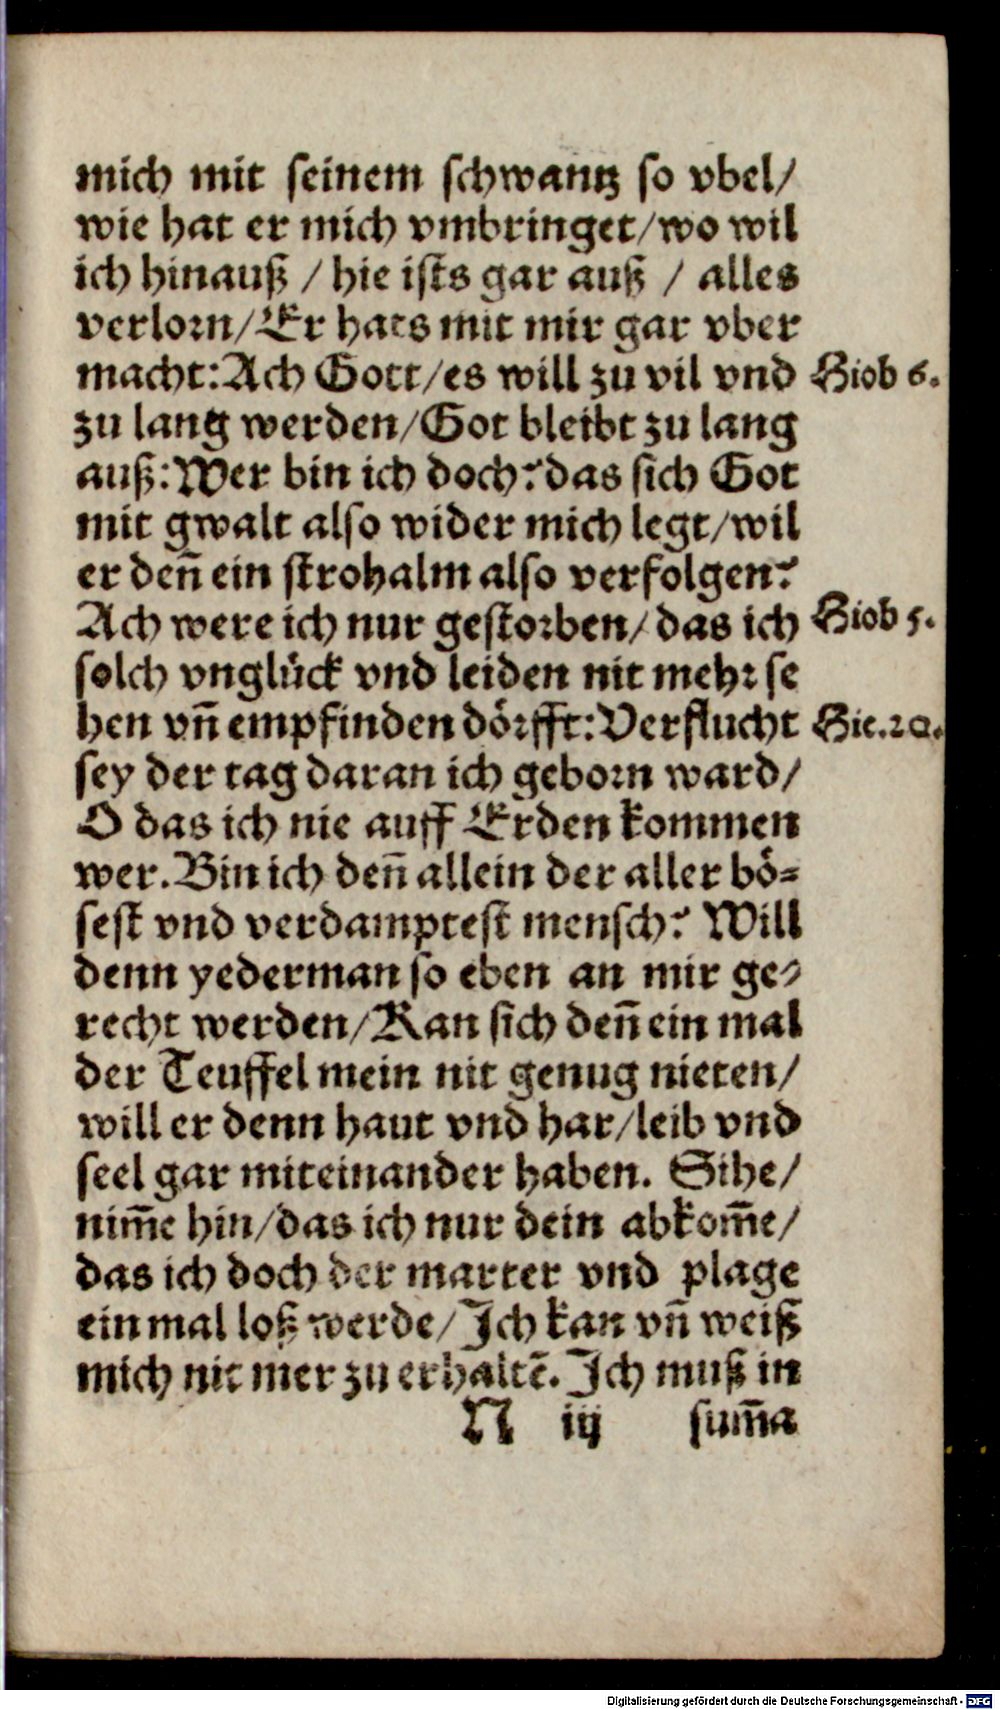 mich mit seinem schwantz so vbel/
wie hat er mich vmbringet/wo wil
ich hinauß / hie ists gar auß / alles
verlorn/Er hats mit mir gar vber
macht:Ach Gott/es will zu vil vnd Hiob 6.
zu lang werden/Got bleibt zu lang
auß:Wer bin ich doch?das sich Got
mit gwalt also wider mich legt/wil
er deñ ein strohalm also verfolgen?
Ach were ich nur gestorben/das ich Hiob 5.
solch vnglück vnd leiden nit mehr se
hen vñ empfinden dörfft:Verflucht Hie.20.
sey der tag daran ich geborn ward/
O das ich nie auff Erden kommen
wer.Bin ich deñ allein der aller bö-
sest vnd verdamptest mensch? Will
denn yederman so eben an mir ge-
recht werden/Kan sich deñ ein mal
der Teuffel mein nit genug nieten/
will er denn haut vnd har/leib vnd
seel gar miteinander haben. Sihe/
nim̃e hin/das ich nur dein abkom̃e/
das ich doch der marter vnd plage
ein mal loß werde/Ich kan vñ weiß
mich nit mer zu erhaltẽ.Ich muß in
N iij sum̃a
Digitalisierung gefördert durch die Deutsche Forschungsgemeinschaft - DFG